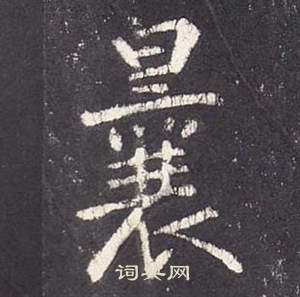 曩
词典网